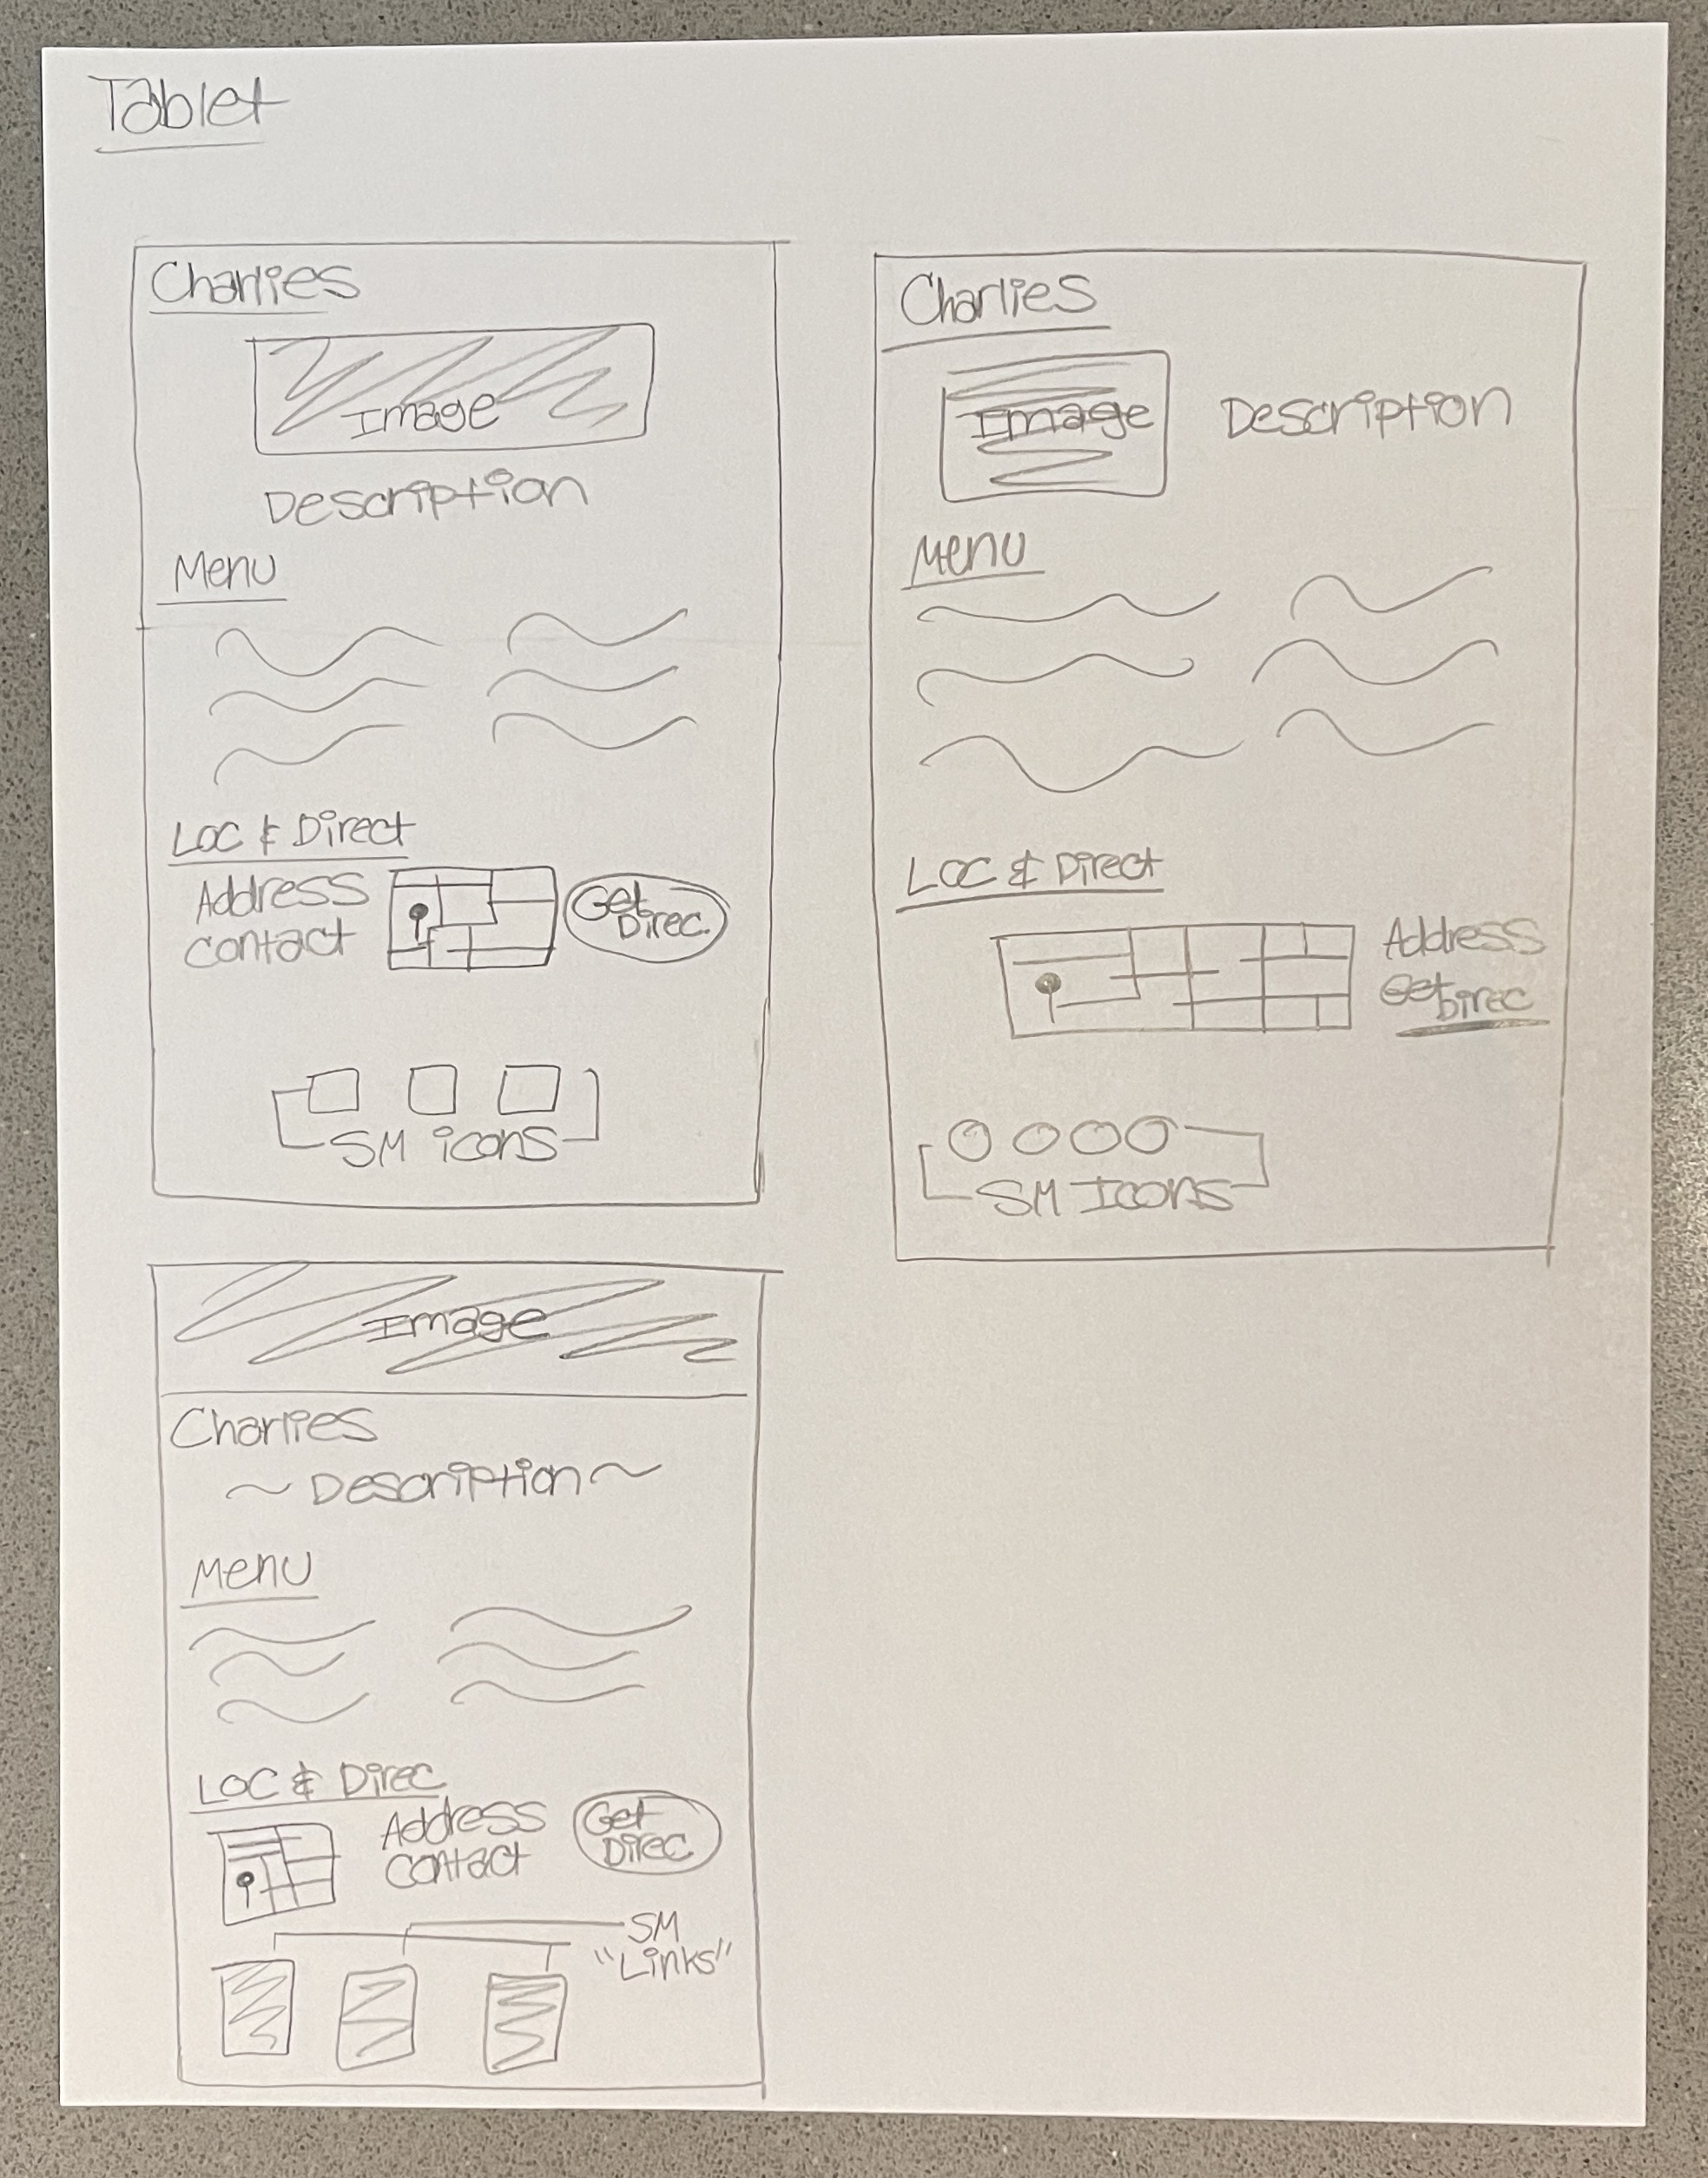 Tablet
Charlies
Image
Description
Menu
Loc & Direct
Address
contact
Get
Direc.
SM icons
Charlies
Image
Description
Menu
Loc & Direct
Address
Get
Direc
SM Icons
Image
Charlies
~ Description ~
Menu
Loc & Direc
Address
contact
Get
Direc
SM
"Links"